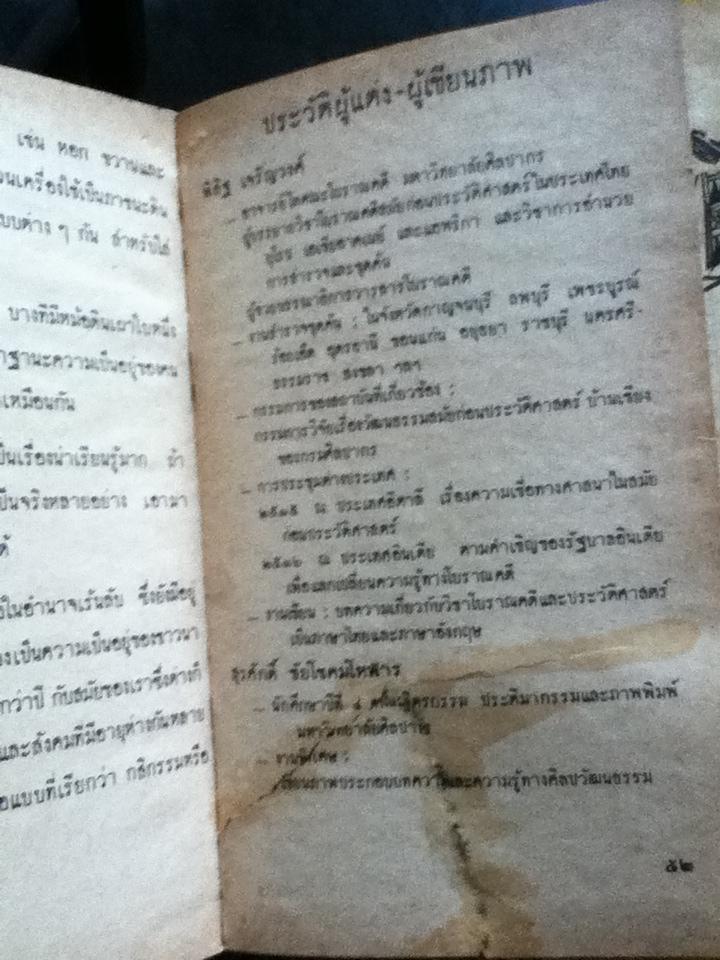 เช่น หอก ขวานและ
วนเครื่องใช้เป็นภาชนะดิน
แบบต่าง ๆ กัน สำหรับใส่
บางทีมีหม้อดินเผาใบหนึ่ง
ฐานะความเป็นอยู่ของคน
เหมือนกัน
เป็นเรื่องน่าเรียนรู้มาก ถ้า
เป็นจริงหลายอย่าง เอามา
ได้
ในอำนาจเร้นลับ ซึ่งยังมีอยู่
องเป็นความเป็นอยู่ของชาวนา
กว่าปี กับสมัยของเราซึ่งต่างก็
และสังคมที่มีอายุห่างกันหลาย
อแบบที่เรียกว่า กสิกรรมหรือ
ประวัติผู้แต่ง-ผู้เขียนภาพ
พิสิฐ เจริญวงศ์
– อาจารย์โทคณะโบราณคดี มหาวิทยาลัยศิลปากร
ผู้บรรยายวิชาโบราณคดีสมัยก่อนประวัติศาสตร์ในประเทศไทย
ยุโรป เอเชียอาคเนย์ และแอฟริกา และวิชาการอำนวย
การสำรวจและขุดค้น
ผู้ช่วยบรรณาธิการวารสารโบราณคดี
– งานสำรวจขุดค้น : ในจังหวัดกาญจนบุรี ลพบุรี เพชรบูรณ์
ร้อยเอ็ด อุดรธานี ขอนแก่น อยุธยา ราชบุรี นครศรี-
ธรรมราช สงขลา ฯลฯ
– กรรมการของสถาบันที่เกี่ยวข้อง :
กรรมการวิจัยเรื่องวัฒนธรรมสมัยก่อนประวัติศาสตร์ บ้านเชียง
ของกรมศิลปากร
– การประชุมต่างประเทศ :
๒๕๑๕ ณ ประเทศอิตาลี เรื่องความเชื่อทางศาสนาในสมัย
ก่อนประวัติศาสตร์
๒๕๑๖ ณ ประเทศอินเดีย ตามคำเชิญของรัฐบาลอินเดีย
เพื่อแลกเปลี่ยนความรู้ทางโบราณคดี
– งานเขียน : บทความเกี่ยวกับวิชาโบราณคดีและประวัติศาสตร์
เป็นภาษาไทยและภาษาอังกฤษ
สุรศักดิ์ ชัยโชคมโหฬาร
– นักศึกษาปีที่ ๔ คณะจิตรกรรม ประติมากรรมและภาพพิมพ์
มหาวิทยาลัยศิลปากร
– งานพิเศษ :
เขียนภาพประกอบบทความและความรู้ทางศิลปวัฒนธรรม
๕๒